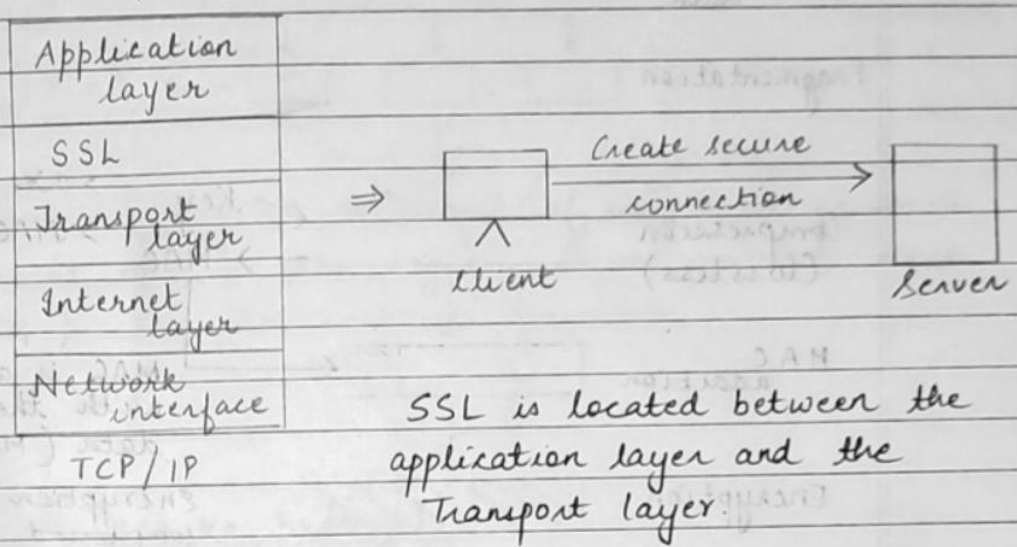 Application
layer
SSL
Transport
layer
Internet
layer
Network
interface
TCP/IP
⇒
Create secure
connection
Client
Server
SSL is located between the
application layer and the
Transport layer.